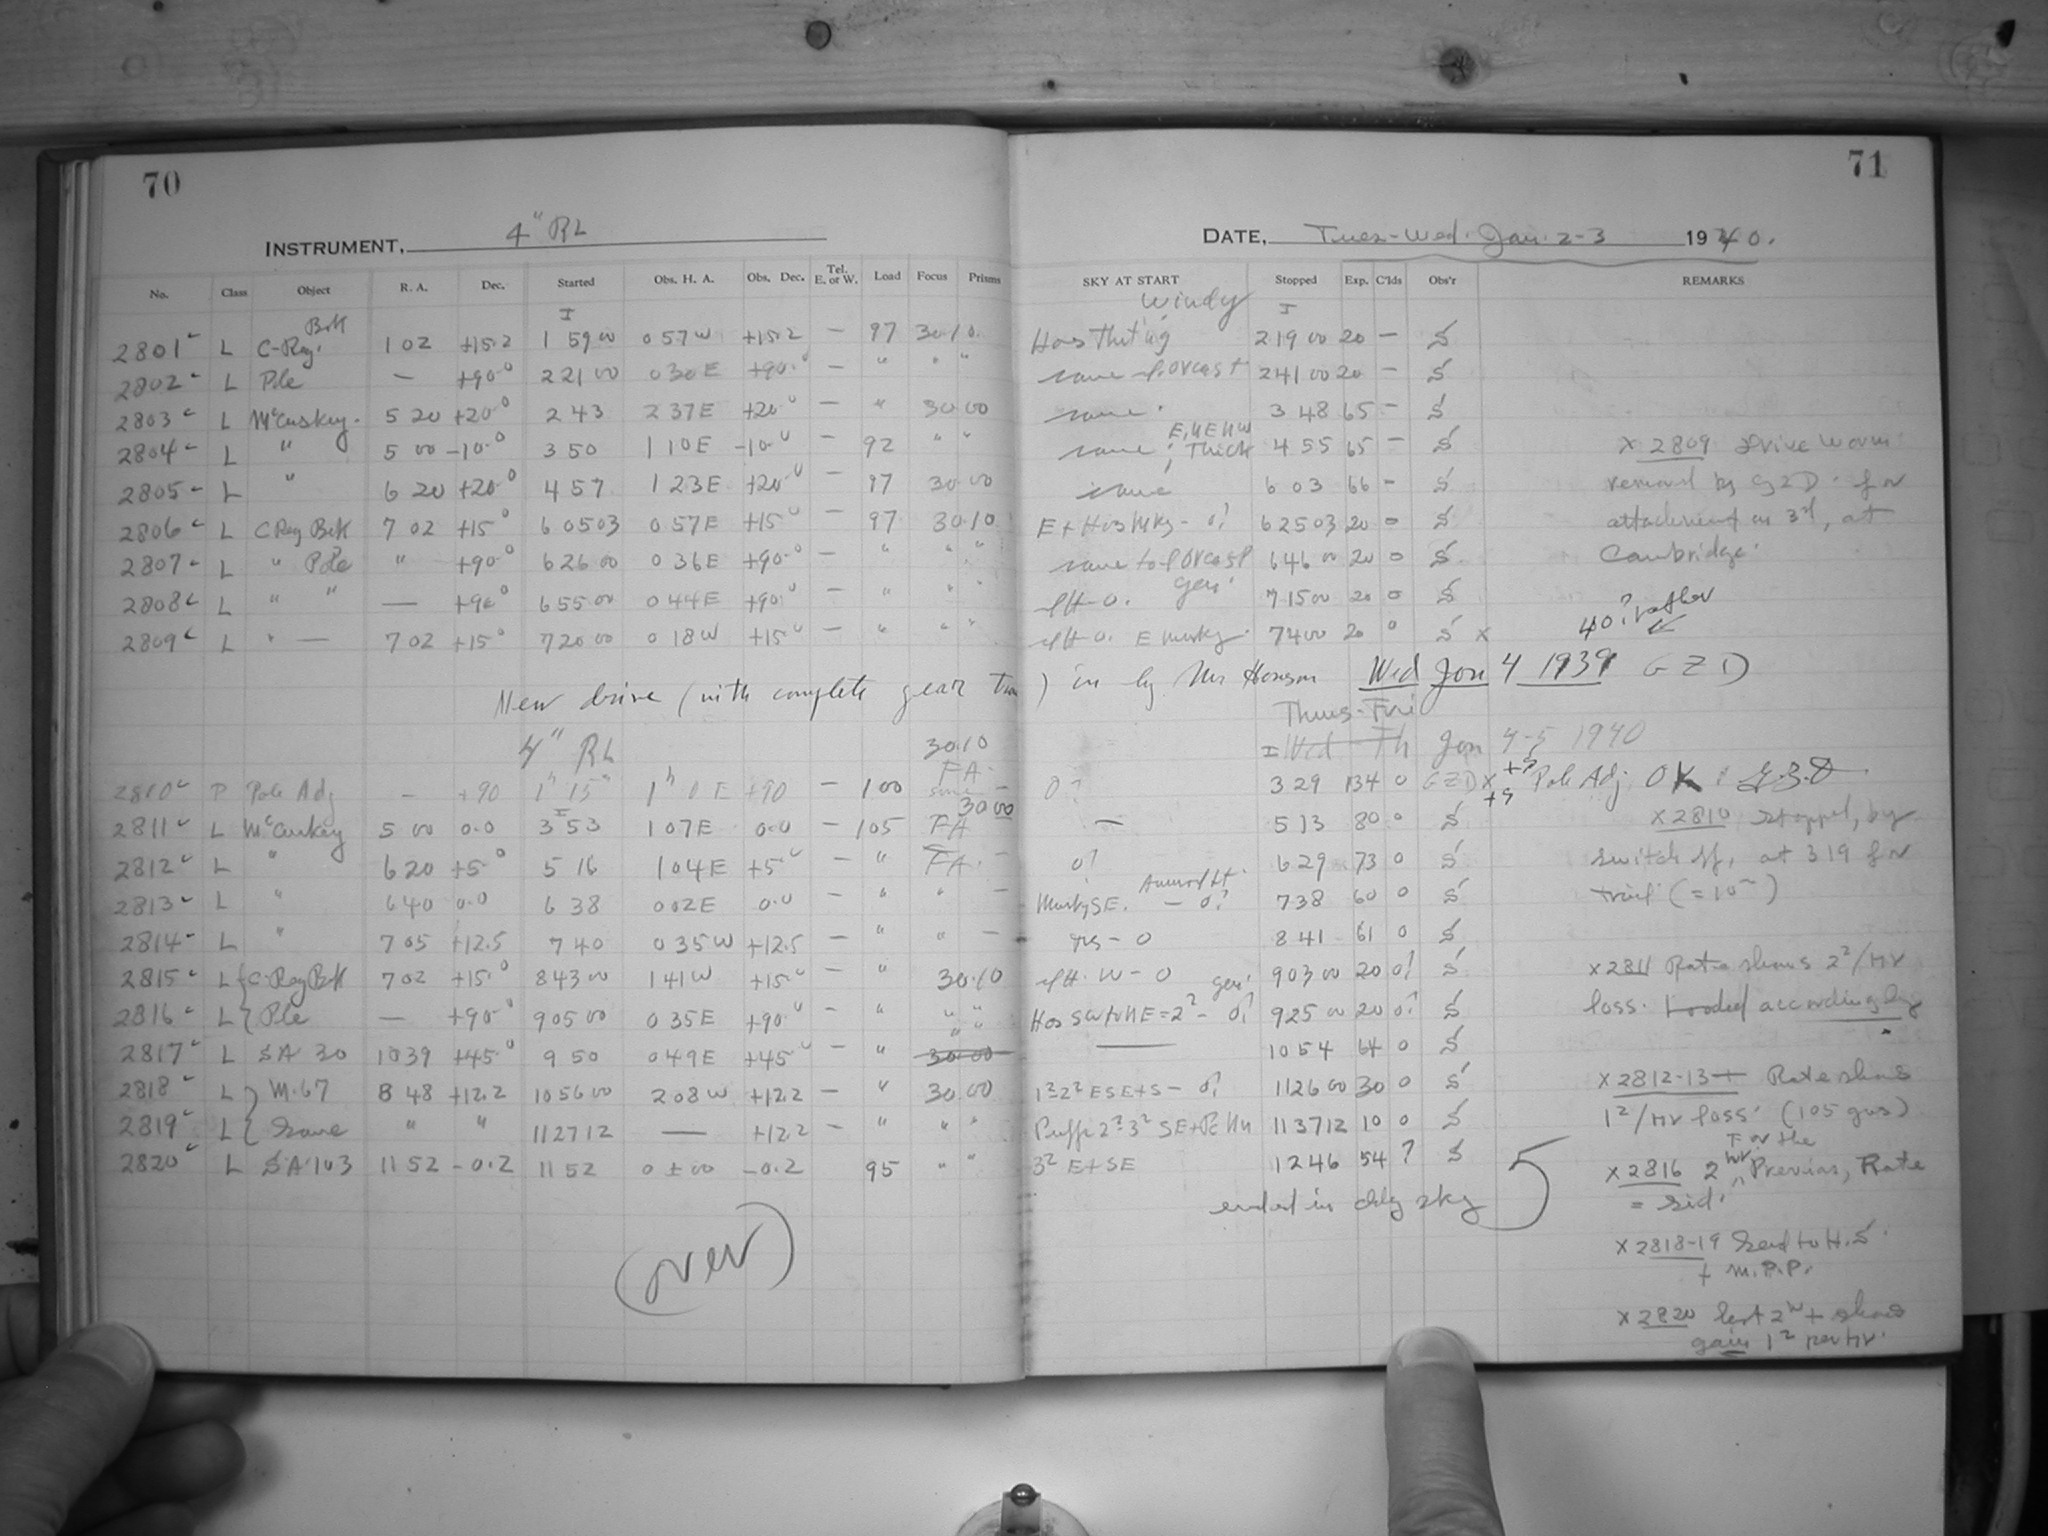 70
INSTRUMENT, 4" RL
No. Class Object R. A. Dec. Started Obs. H. A. Obs. Dec. Tel. E. or W. Load Focus Prisms
I
2801 L C-Reg. BsK 1 02 +15.2 1 59 00 0 57 W +15.2 — 97 30.10
2802 L Pole — +90.0 2 21 00 0 30 E +90.0 — " " "
2803 L McCuskey. 5 20 +20.0 2 43 2 37 E +20.0 — " 30.00
2804 L " 5 00 -10.0 3 50 1 10 E -10.0 — 92 " "
2805 L " 6 20 +20.0 4 57 1 23 E +20.0 — 97 30.00
2806 L C Reg BsK 7 02 +15.0 6 05 03 0 57 E +15.0 — 97 30.10
2807 L " Pole " +90.0 6 26 00 0 36 E +90.0 — " " "
2808 L " " — +90.0 6 55 00 0 44 E +90.0 — " " "
2809 L " — 7 02 +15.0 7 20 00 0 18 W +15.0 — " " "
New drive (with complete gear
4" RL 30.10
2810 P Pole Adj — +90 1h 15m 1h 0 E +90 — 100 FA
I 30.00
2811 L McCuskey 5 00 0.0 3 53 1 07 E 0.0 — 105 FA
2812 L " 6 20 +5.0 5 16 1 04 E +5.0 — " FA. —
2813 L " 6 40 0.0 6 38 0 02 E 0.0 — " " —
2814 L " 7 05 +12.5 7 40 0 35 W +12.5 — " " —
2815 L C-Reg BsK 7 02 +15.0 8 43 00 1 41 W +15.0 — " 30.10
2816 L Pole — +90.0 9 05 00 0 35 E +90.0 — " " "
2817 L SA 30 10 39 +45.0 9 50 0 49 E +45.0 — " 30.00
2818 L M.67 8 48 +12.2 10 56 00 2 08 W +12.2 — " 30.00
2819 L Same " " 11 27 12 — +12.2 — " " "
2820 L SA 103 11 52 -0.2 11 52 0 ± 00 -0.2 95 " "
(over)
71
DATE, Tues-Wed. Jan. 2-3 1940.
SKY AT START Stopped Exp. C'lds Obs'r REMARKS
Windy I
2 19 00 20 — S
same 2 41 00 20 — S
same. 3 48 65 — S
same; Thick 4 55 65 — S
same 6 03 66 — S
6 25 03 20 0 S
same to 6 46 00 20 0 S
7 15 00 20 0 S
E murky. 7 40 0 20 0 S x
x 2809 drive worm
removed by GZD for
attachment on 3d, at
Cambridge.
40? rather
) in by Mr Wed Jan 4 1939 GZD
Thurs-Fri
I Wed Th Jan 4-5 1940
0? 3 29 134 0 GZD x Pole Adj. OK.
— 5 13 80 0 S
0? 6 29 73 0 S
Murky SE. — 0? 7 38 60 0 S
— 0 8 41 61 0 S
W — 0 9 03 00 20 0? S
9 25 00 20 0? S
— 10 54 64 0 S
E SE+S — 0? 11 26 00 30 0 S
11 37 12 10 0 S
E+SE 12 46 54 ? S
ended in cldy sky 5
x 2810 stopped, by
switch off, at 3 19 for
trail (= 10m)
x 2811 Rate shows 2s/Hr
loss. Loaded accordingly
x 2812-13 + Rate shows
1s/Hr loss. (105 gms)
x 2816 2 For the Previous, Rate
= sid.
x 2818-19 Send to H.S.
+ M.P.P.
x 2820 shows
gain 1s per Hr.